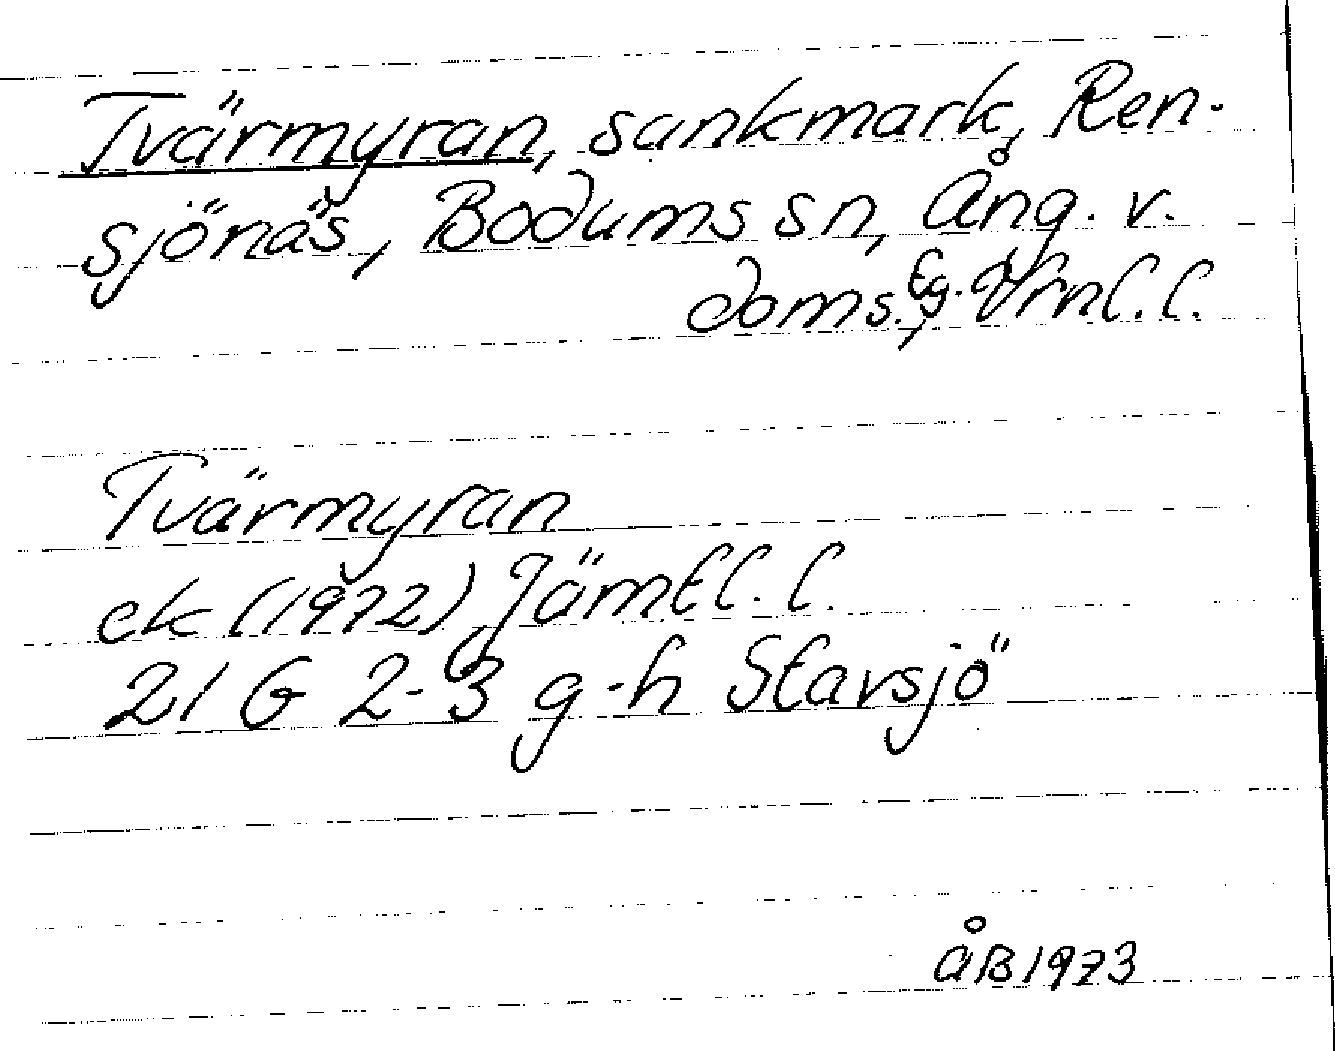 Tvärmyran, sankmark, Ren-
sjönäs, Bodums sn, Ång. v.
doms.
Tvärmyran
ek (1972), Jämtl. l.
21 G 2-3 g-h Stavsjö
ÅB 1973